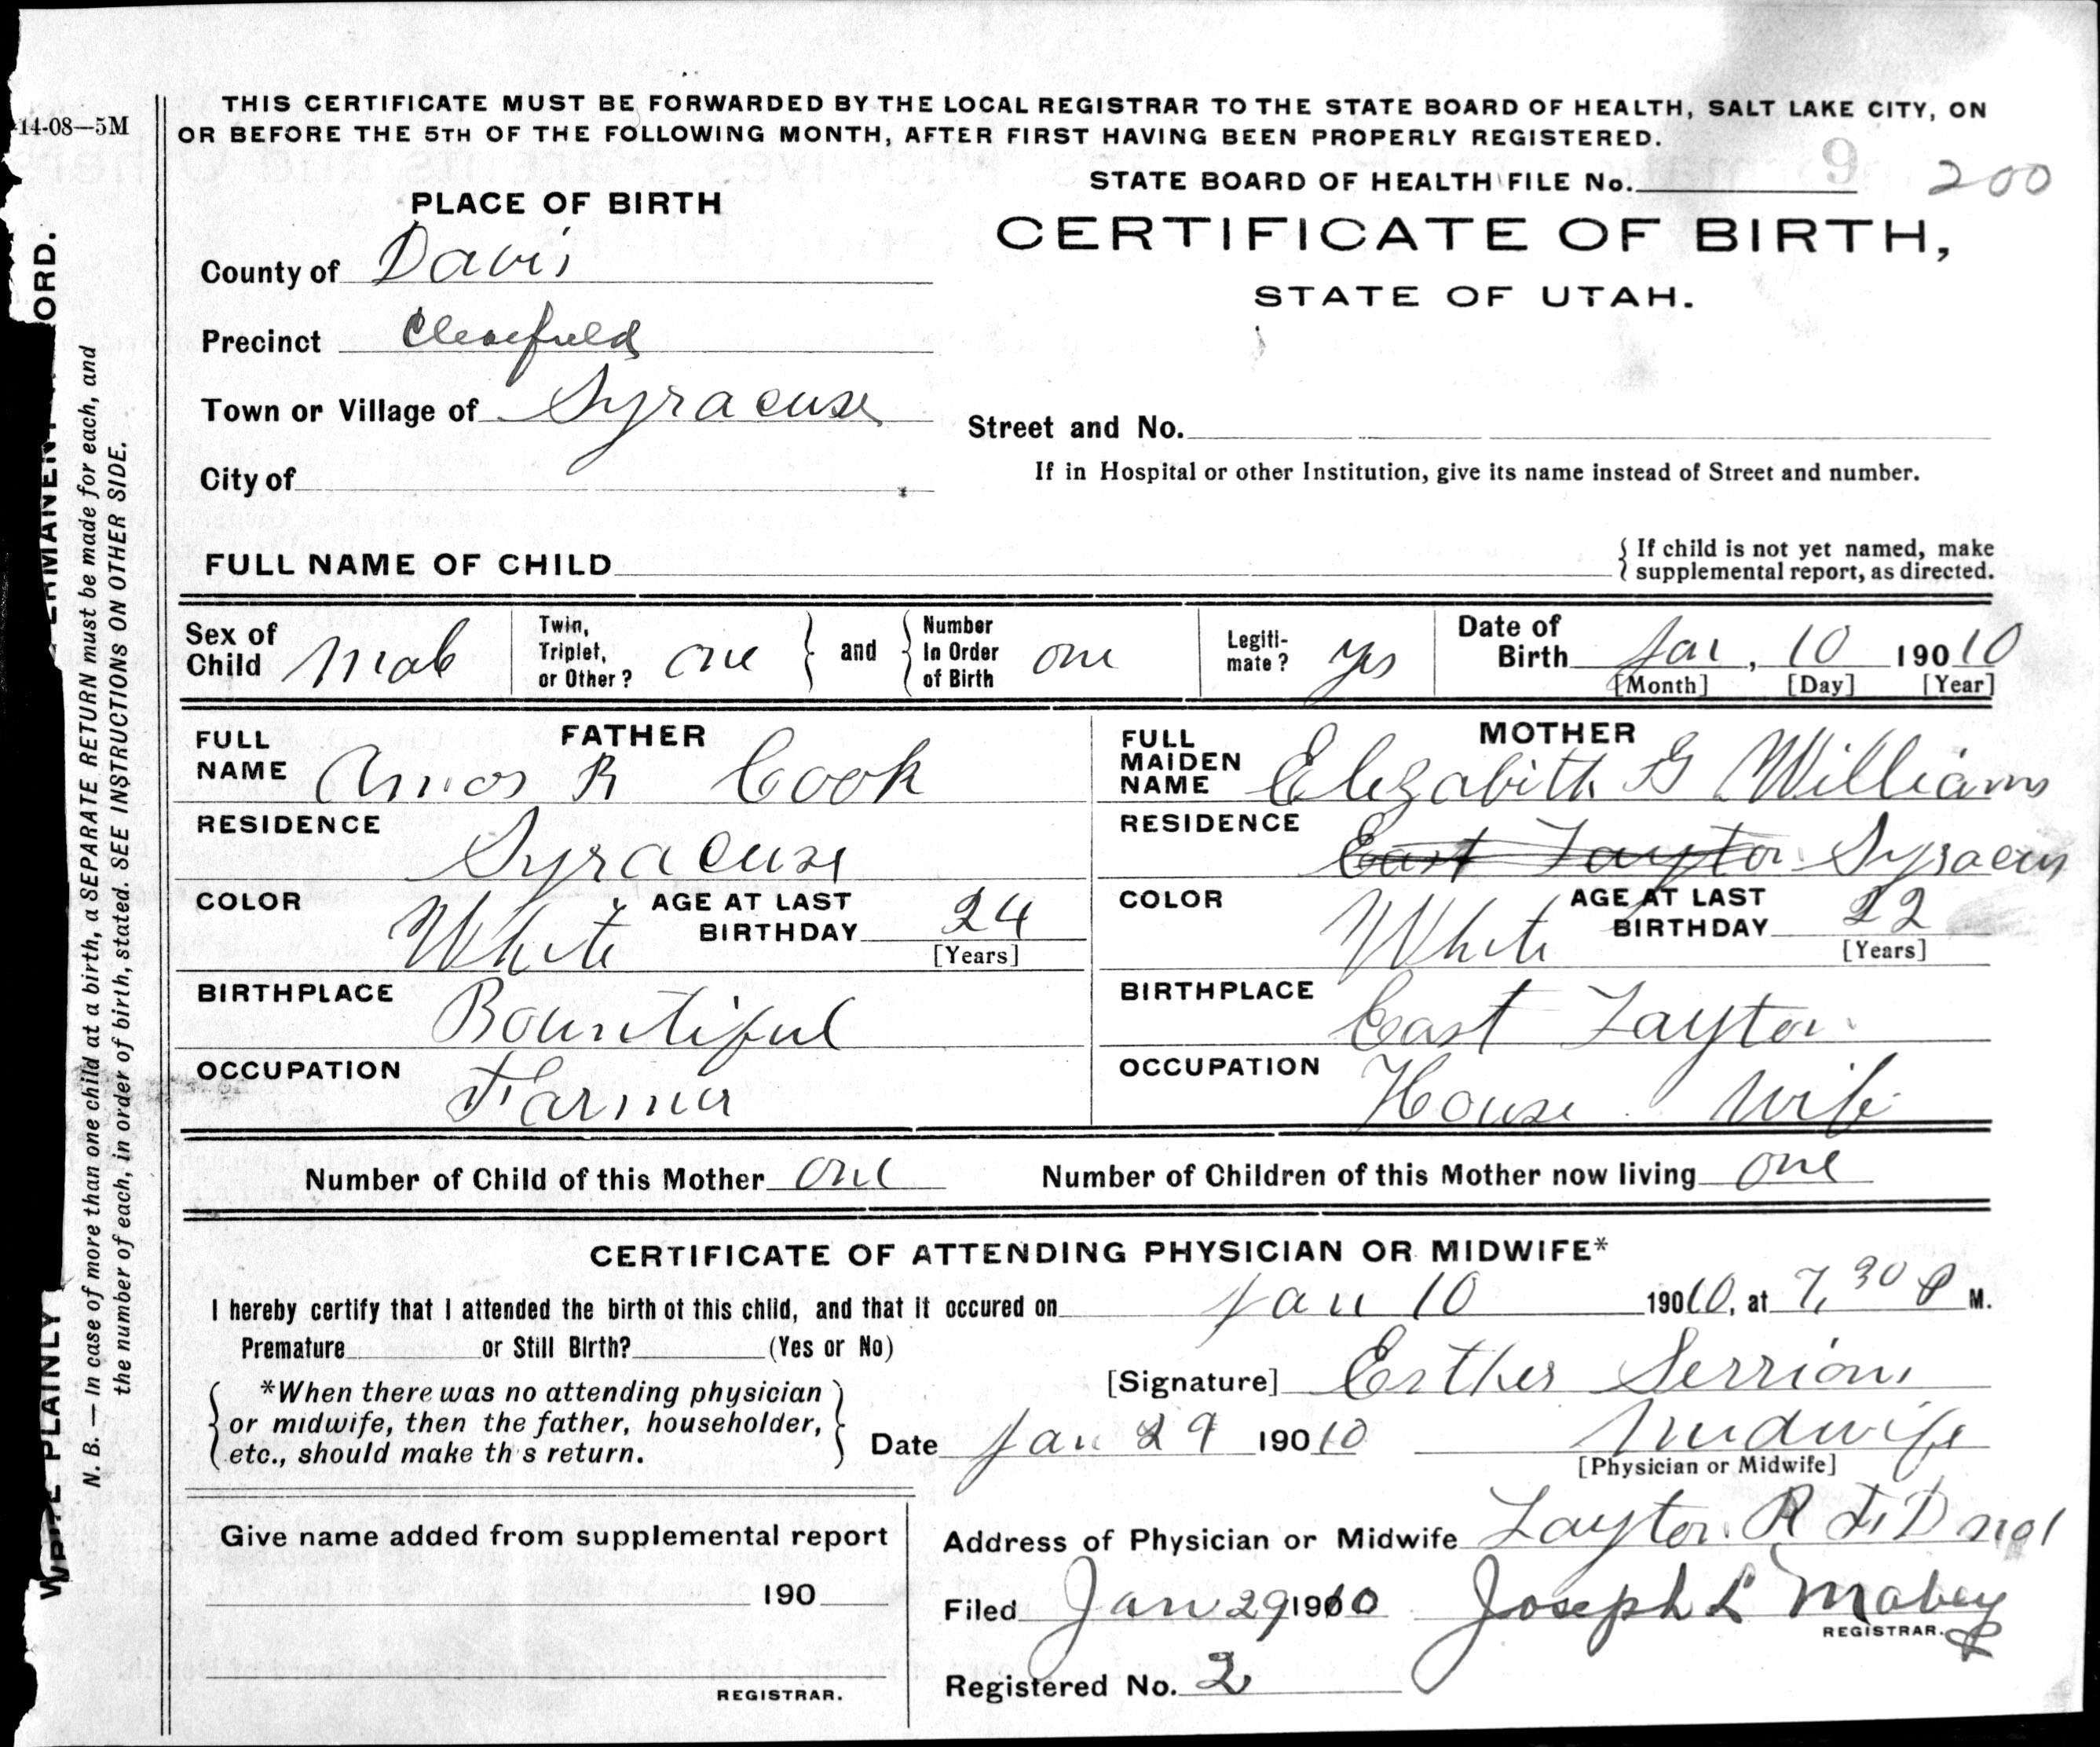 THIS CERTIFICATE MUST BE FORWARDED BY THE LOCAL REGISTRAR TO THE STATE BOARD OF HEALTH, SALT LAKE CITY, ON
14-08—5M
OR BEFORE THE 5TH OF THE FOLLOWING MONTH, AFTER FIRST HAVING BEEN PROPERLY REGISTERED.
STATE BOARD OF HEALTH FILE No. 9 200
PLACE OF BIRTH
CERTIFICATE OF BIRTH,
STATE OF UTAH.
County of Davis
Precinct Clearfield
Town or Village of Syracuse
Street and No.
City of
If in Hospital or other Institution, give its name instead of Street and number.
FULL NAME OF CHILD
{ If child is not yet named, make
supplemental report, as directed.
Sex of Child Male
Twin, Triplet, or Other? one } and { Number In Order of Birth one
Legiti-mate? yes
Date of Birth Jan, 10 190 10
[Month] [Day] [Year]
FATHER
FULL NAME Amos R Cook
RESIDENCE Syracuse
COLOR White AGE AT LAST BIRTHDAY 24
[Years]
BIRTHPLACE Bountiful
OCCUPATION Farmer
MOTHER
FULL MAIDEN NAME Elizabith G Williams
RESIDENCE East Layton Syracus
COLOR White AGE AT LAST BIRTHDAY 22
[Years]
BIRTHPLACE East Layton
OCCUPATION House Wife
Number of Child of this Mother one Number of Children of this Mother now living one
CERTIFICATE OF ATTENDING PHYSICIAN OR MIDWIFE*
I hereby certify that I attended the birth of this child, and that it occured on Jan 10 190 10, at 7,30 P M.
Premature or Still Birth? (Yes or No)
[Signature] Esther
{ *When there was no attending physician
or midwife, then the father, householder,
etc., should make th's return. }
Date Jan 29 190 10 Midwife
[Physician or Midwife]
Give name added from supplemental report
190
REGISTRAR.
Address of Physician or Midwife Layton R F D no 1
Filed Jan 29 1910 Joseph L Mabey
REGISTRAR.
Registered No. 2
WRITE PLAINLY
ERMANENT
ORD.
N. B. — In case of more than one child at a birth, a SEPARATE RETURN must be made for each, and
the number of each, in order of birth, stated. SEE INSTRUCTIONS ON OTHER SIDE.